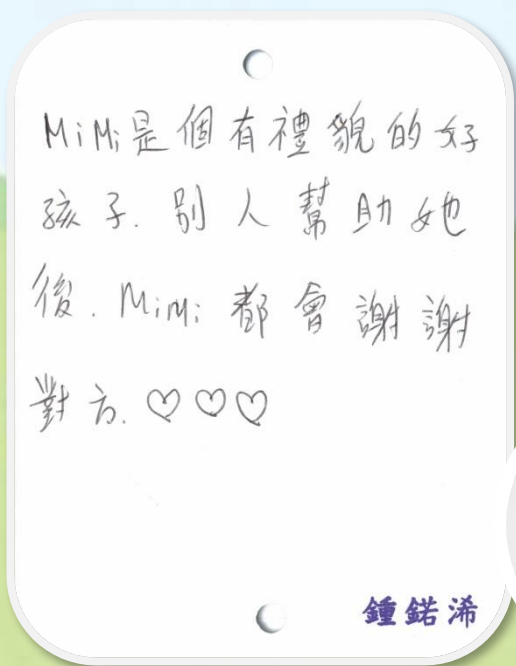 MiMi是個有禮貌的好
孩子.別人幫助她
後.MiMi都會謝謝
對方.♡♡♡
鍾鍩浠